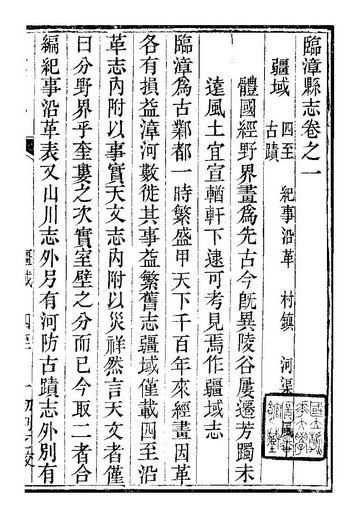 臨漳縣志卷之一
疆域 四至 紀事沿革 村鎮 河渠
古蹟
體國經野界畫為先古今旣異陵谷屢遷芳躅未
遠風土宜宣輶軒下逮可考見焉作疆域志
臨漳為古鄴都一時繁盛甲天下千百年來經畫因革
各有損益漳河數徙其事益繁舊志疆域僅載四至沿
革志內附以事實天文志內附以災祥然言天文者僅
曰分野界乎奎婁之次實室壁之分而已今取二者合
編紀事沿革表又山川志外另有河防古蹟志外別有
疆域 四至 一